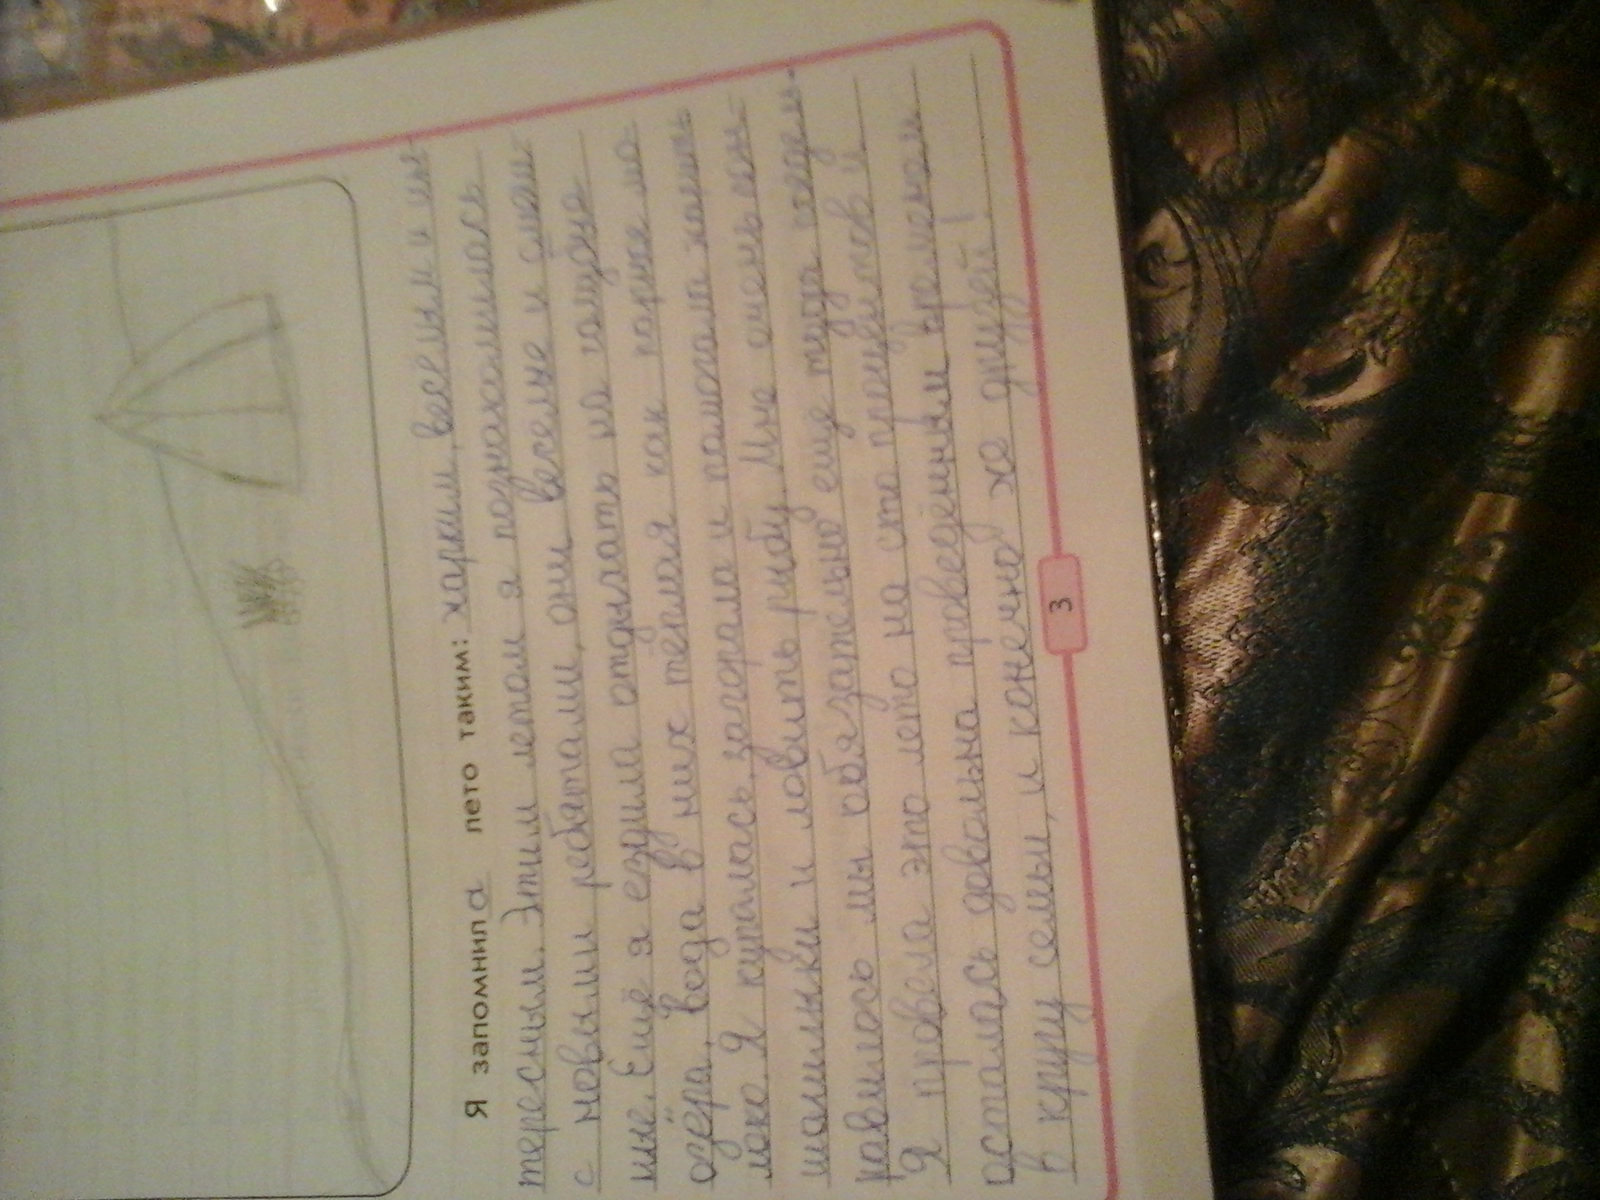 Я запомнила лето таким: жарким, весёлым и ин-
тересным. Этим летом я познакомилась
с новыми ребятами, они весёлые и смеш-
ные. Ещё я ездила отдыхать на
озёра, вода в них тёплая как парное мо-
локо. Я купалась, загорала и помогала жарить
шашлыки и ловить рыбу. Мне очень пон-
равилось мы обязательно еще туда поедем
Я провела это лето на сто процентов и
осталась довольна проведённым временем
в кругу семьи, и конечно же друзей!
3